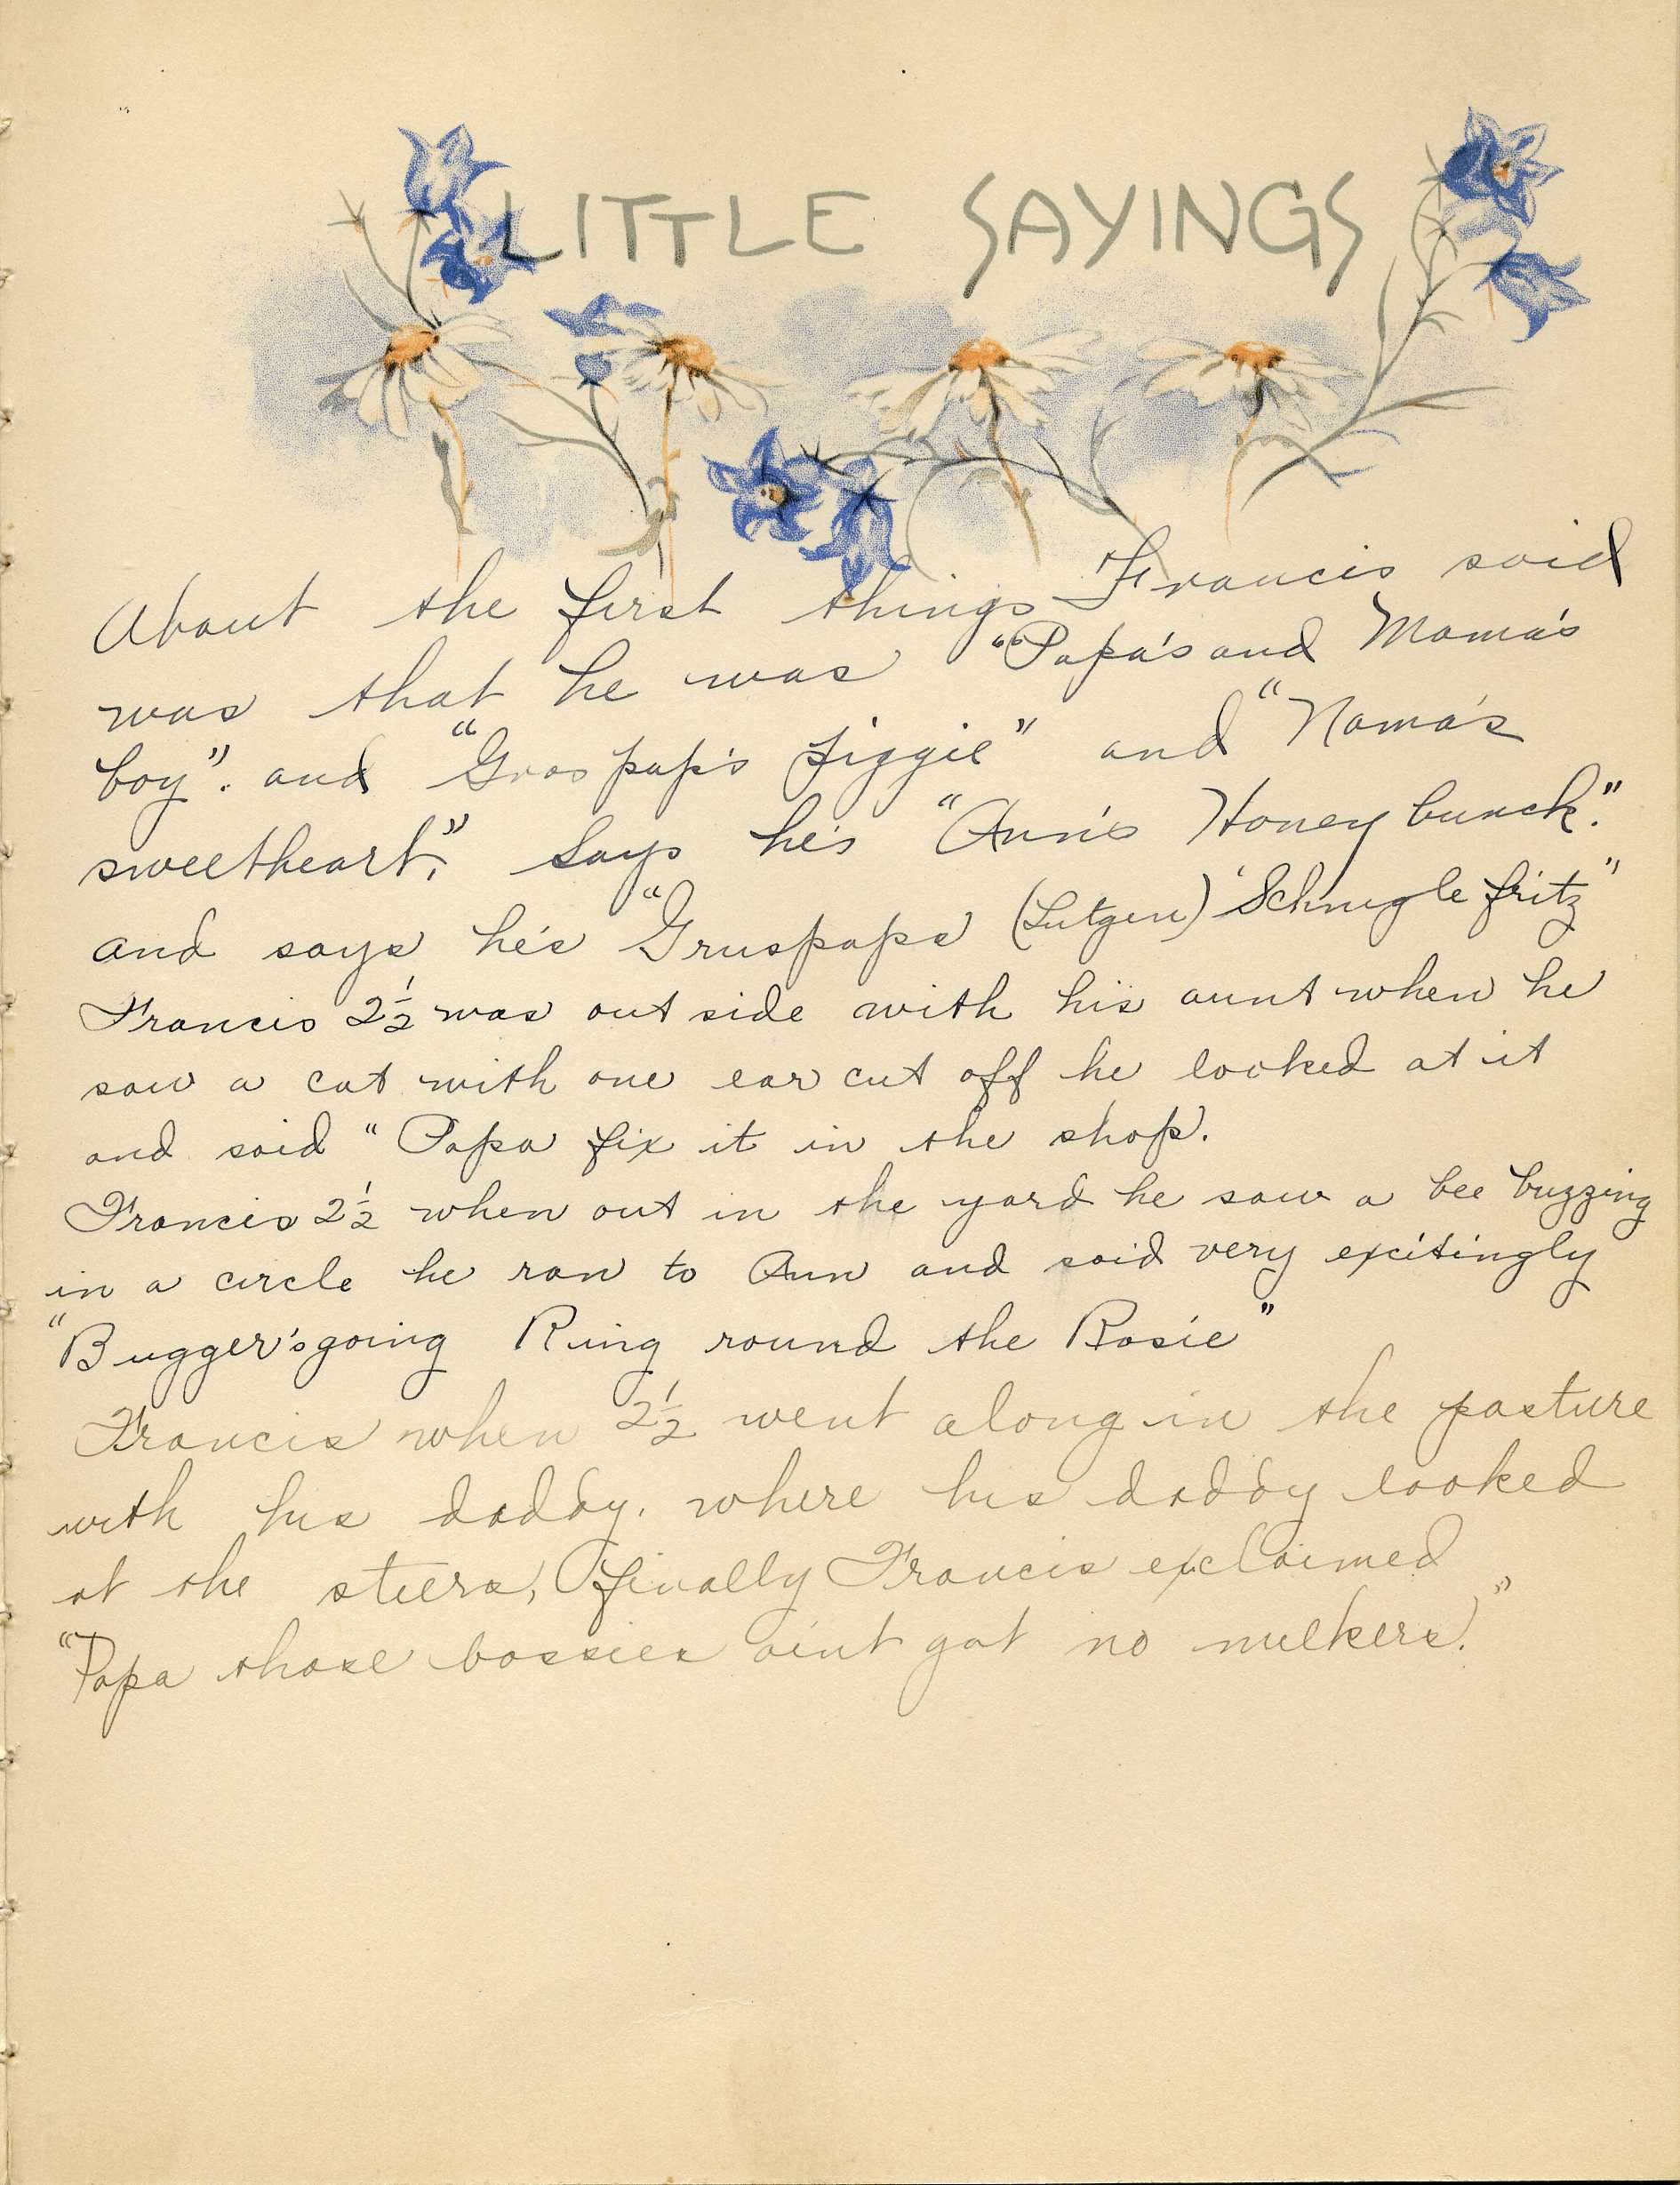 LITTLE SAYINGS
About the first things Francis said
was that he was "Papa's and Mama's
boy". and "Grospap's Figgie" and "Nama's
sweetheart," Says he's "Ann's Honey bunch."
and says he's "Gruspaps (Lutgen) 'Schnugle fritz"
Francis 2½ was out side with his aunt when he
saw a cat with one ear cut off he looked at it
and said "Papa fix it in the shop.
Francis 2½ when out in the yard he saw a bee buzzing
in a circle he ran to Ann and said very excitingly
"Bugger's going Ring round the Rosie"
Francis when 2½ went along in the pasture
with his daddy. where his daddy looked
at the steers, finally Francis exclaimed
"Papa those bossies aint got no milkers."